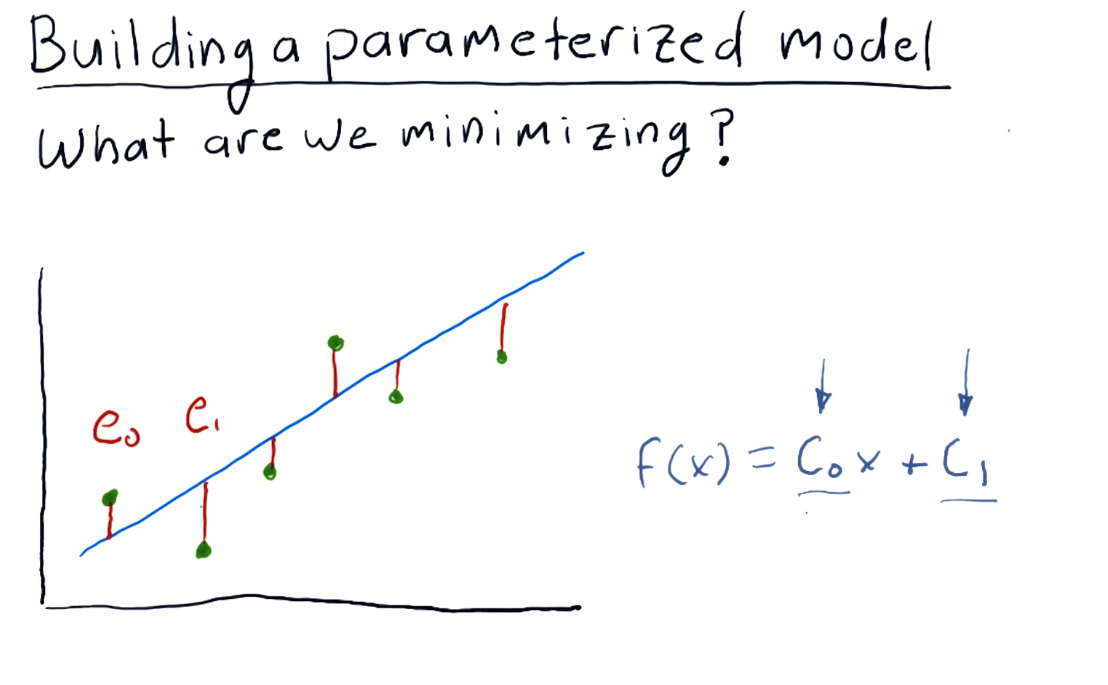 Building a parameterized model
What are we minimizing?
e₀ e₁
f(x) = C₀x + C₁